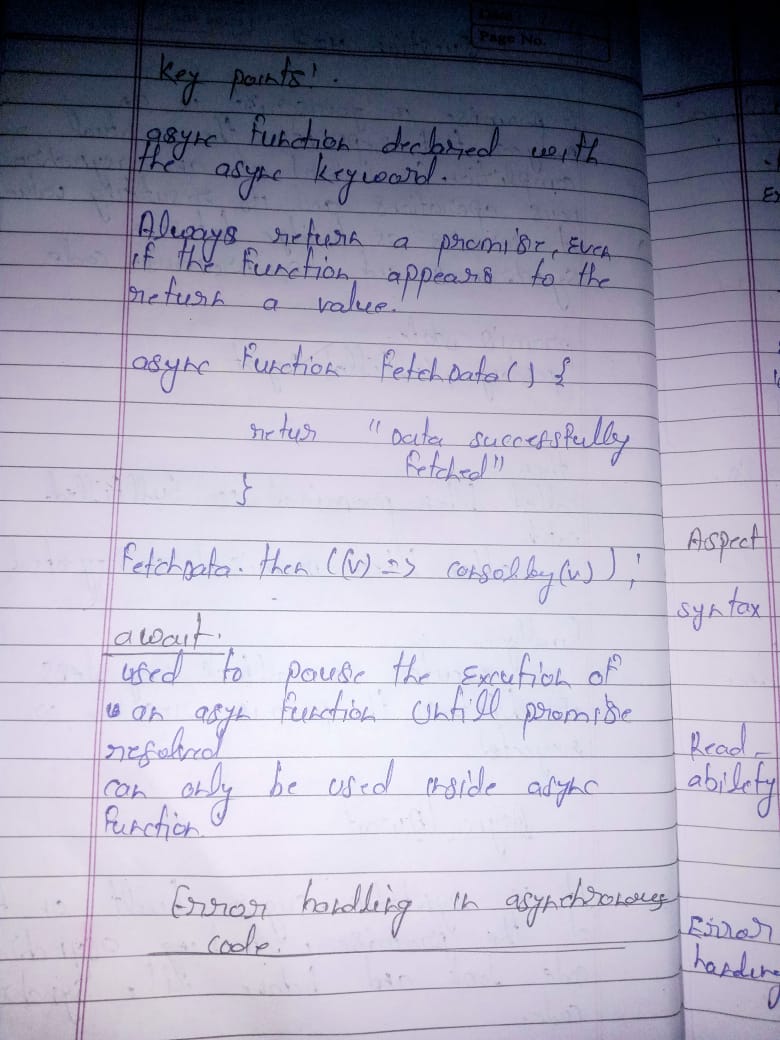 Date
Page No.
Key points:
async function declared with
the async keyword.
Always return a promise, Even
if the function appears to the
return a value.
async function fetchData() {
retur "Data successfully
fetched"
}
fetchData. then ((v) => consol.log(v));
await.
used to pause the Excution of
an asyn function untill promise
resolved
can only be used inside async
function.
Error handling in asynchronous
code.
Ex
Aspect
syntax
Read-
ability
Error